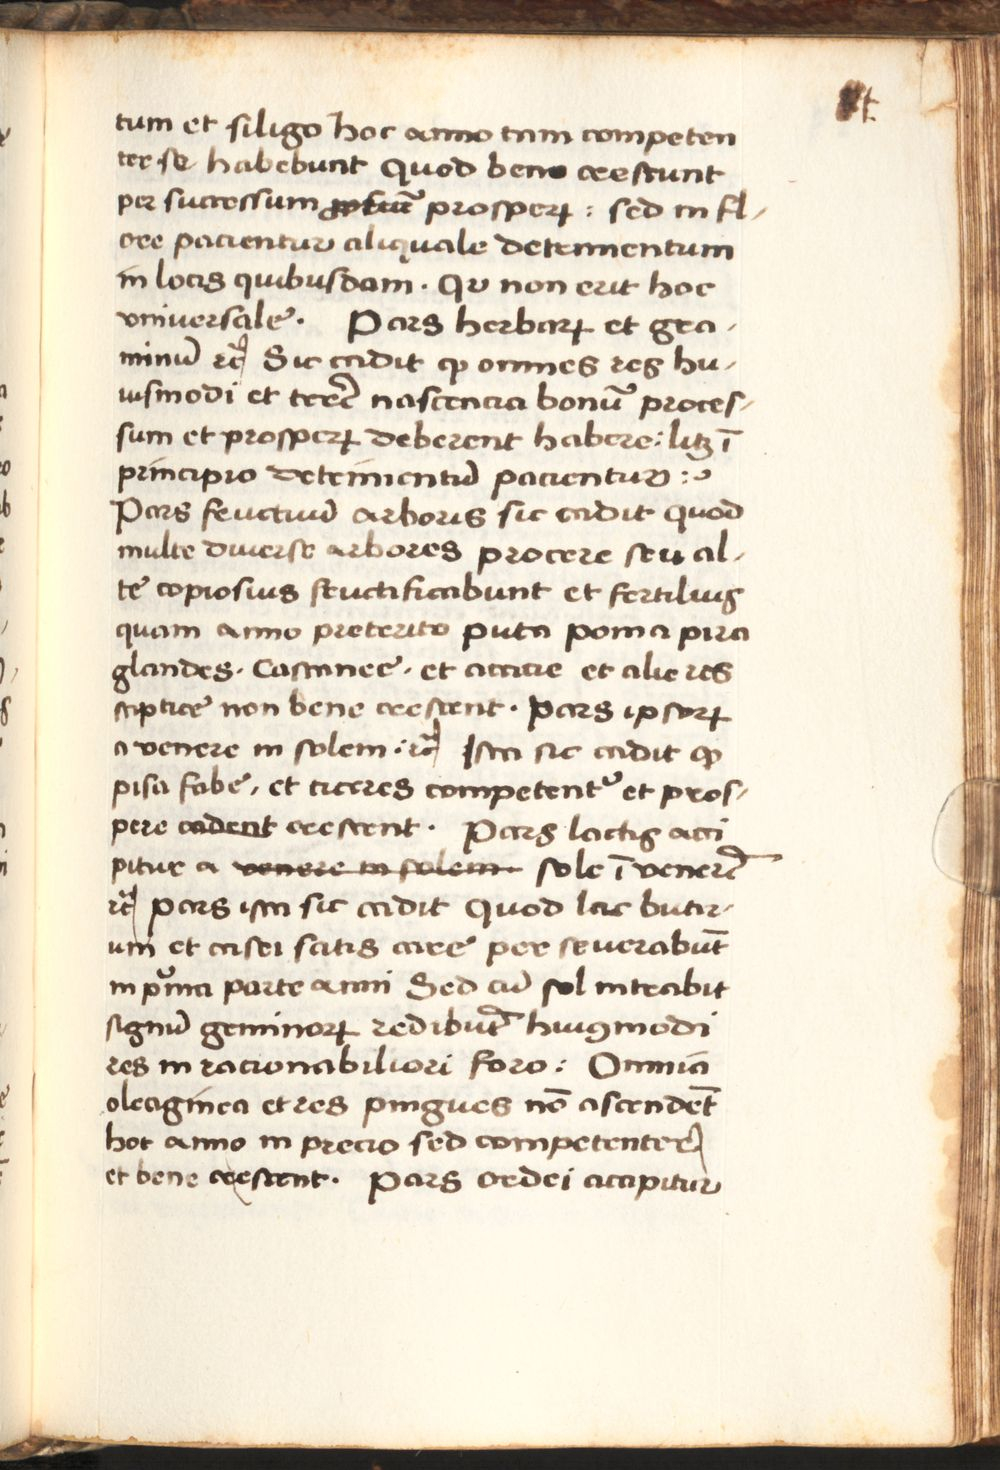 tum et siligo hoc anno tum competen
ter se habebunt Quod bene crescunt
per successum prosperꝝ : sed in fl-
ore pacientur aliquale detrimentum
in locis quibusdam . Qr non erit hoc
vniversale . Pars herbarꝝ et gra-
minū rc̄ Sic cadit ꝙ omnes res hu-
iusmodi et terre nascencia bonū proces-
sum et prosperꝝ deberent habere : litꝫ ī
principio detrimentū pacientur :
Pars fructuū arboris sic cadit quod
multe diuerse arbores procere seu al-
te copiosius fructificabunt et fertilius
quam anno preterito puta poma pira
glandes . Castanee . et accacie et alie res
stiptice non bene crescent . Pars ipsorꝝ
a venere in solem : rc̄ Ista sic cadit ꝙ
pisa fabe , et ciceres competentʳ et pros-
pere cadent crescent . Pars lactis acci
pitur a venere in solem sole ī venerē
rc̄ Pars ista sic cadit Quod lac butir-
um et casei satis care perseuerabūt
in pͥma parte anni Sed cū sol intrabit
signū geminorꝝ redibūt huiꝰmodi
res in racionabiliori foro : Omnia
oleaginea et res pingues nō ascendēt
hoc anno in precio sed competenter
et bene crescent . Pars ordei accipitur